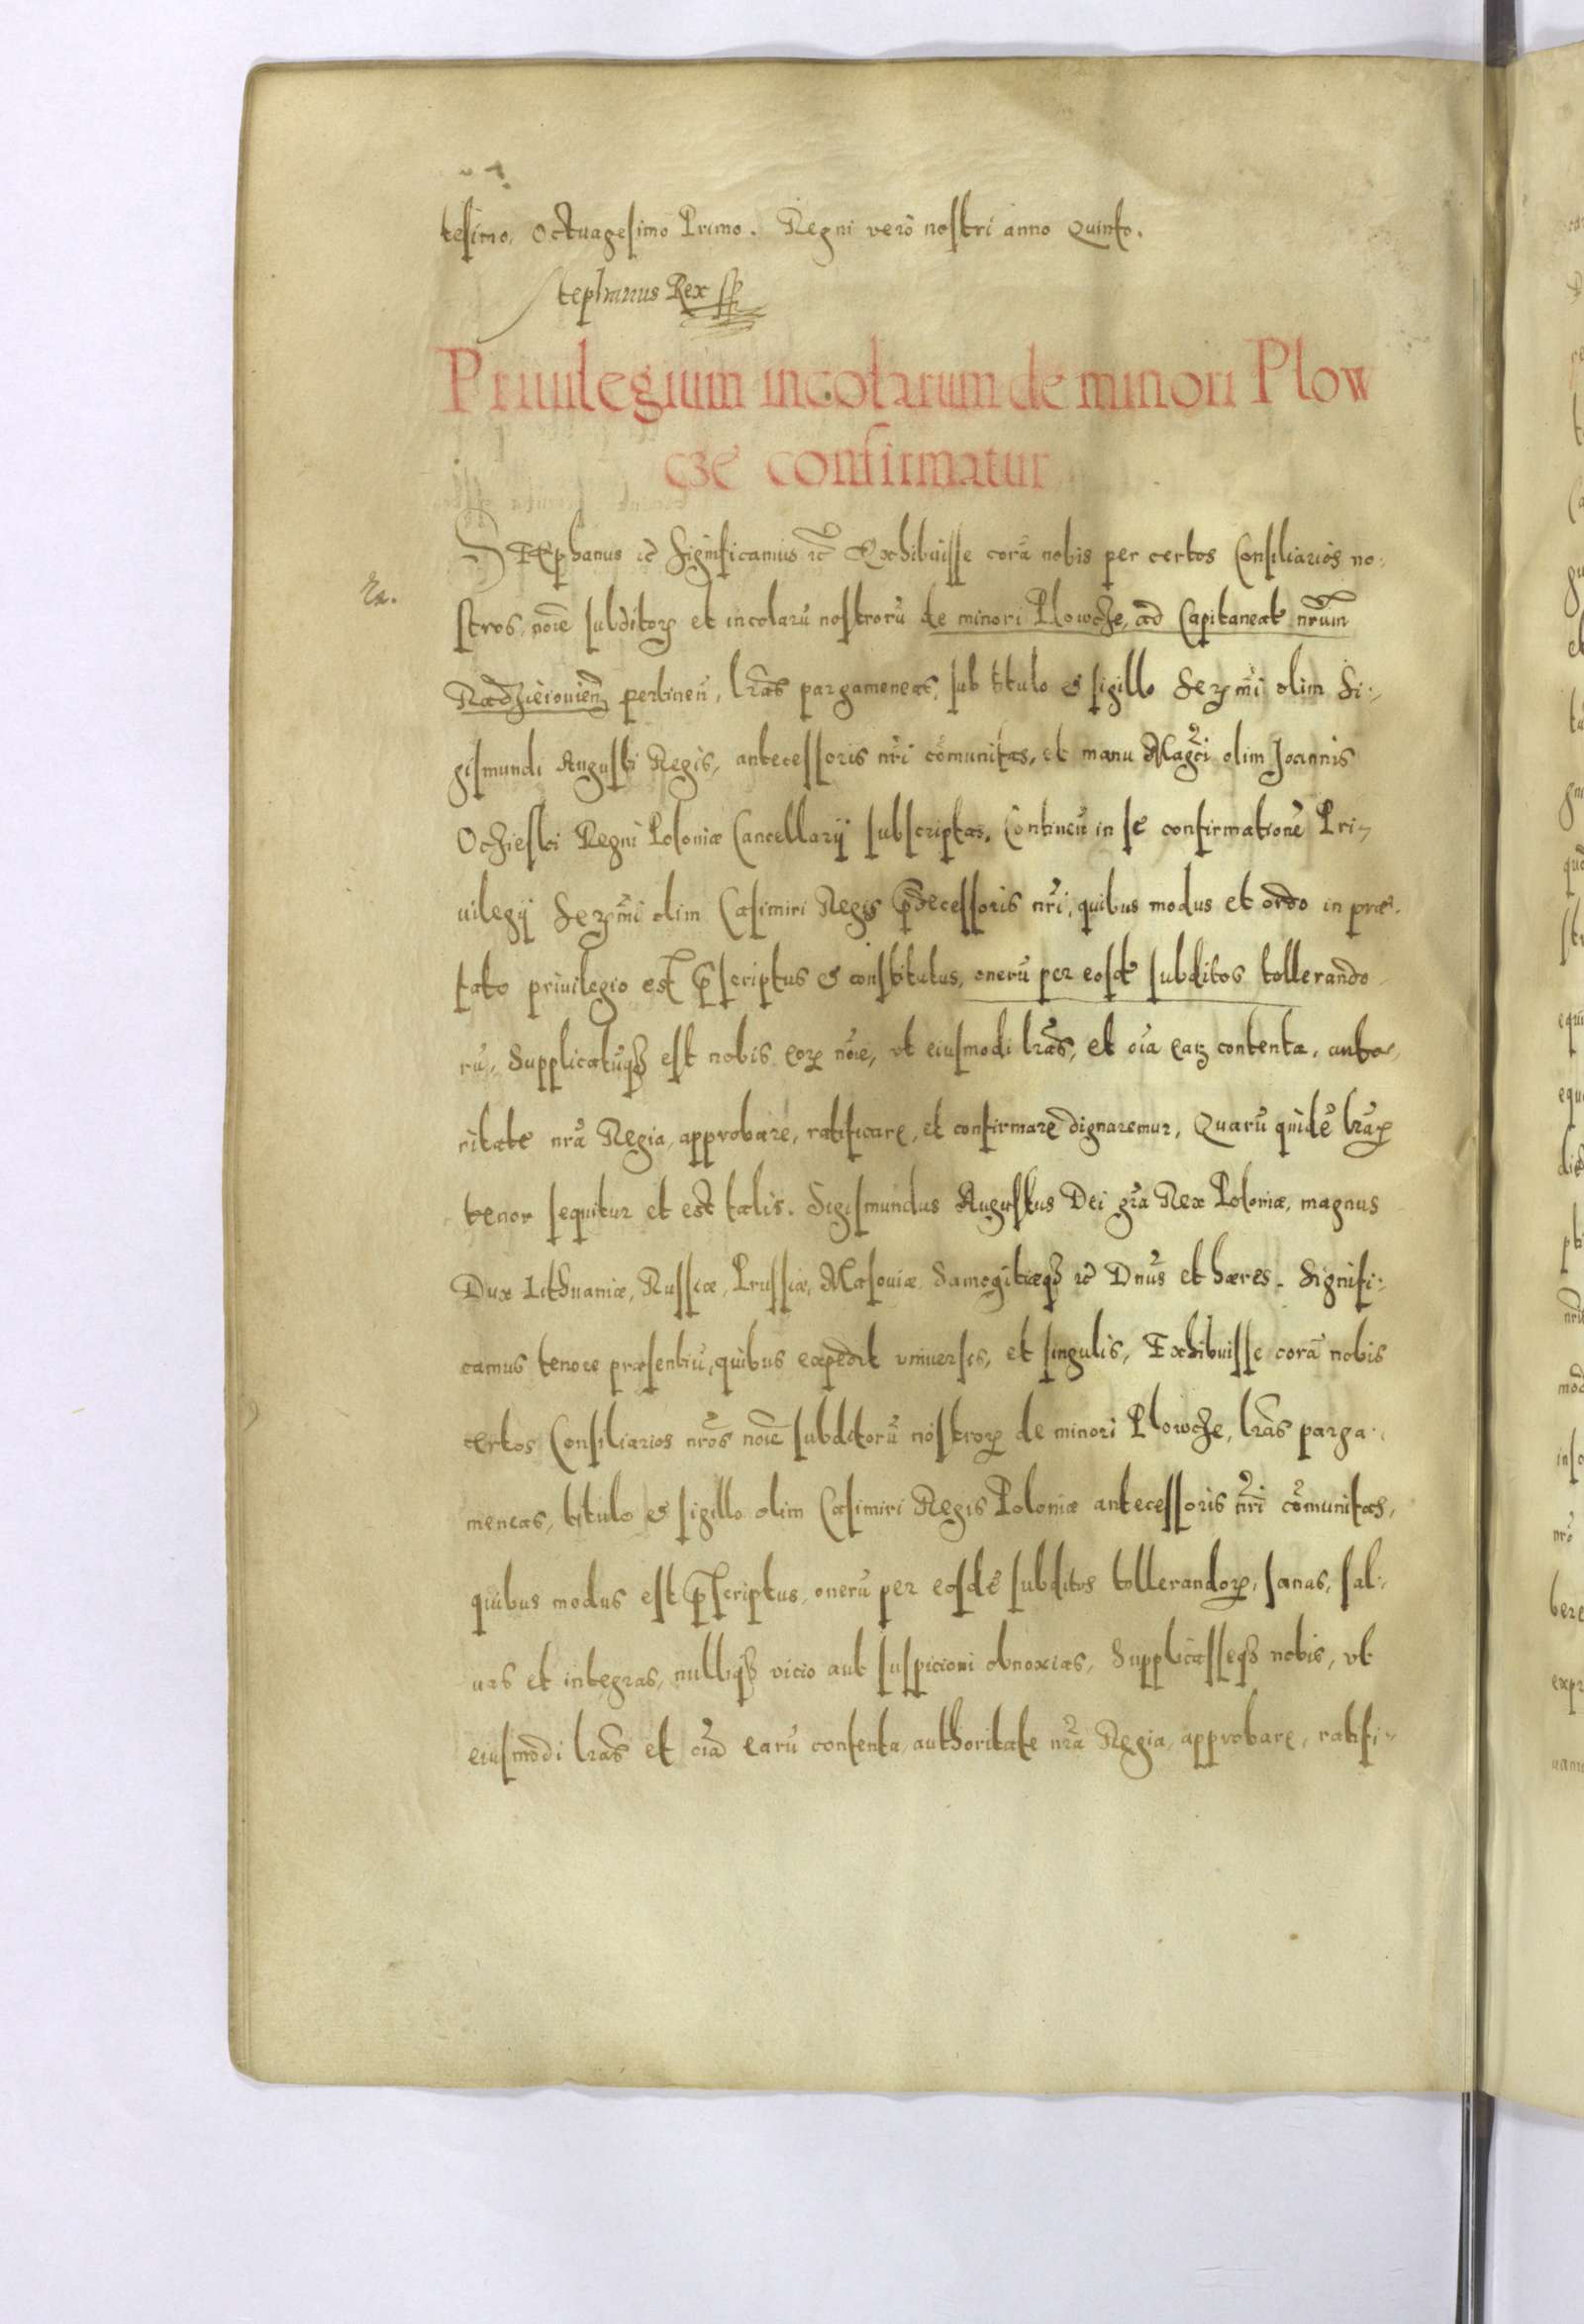 tesimo, Octuagesimo Primo. Regni verò nostri anno Quinto.
Stephanus Rex
Priuilegium incolarum de minori Plow
cze confirmatur
STEphanus ꝛc̃ Significamus ꝛc̃ Exhibuisse corā nobis per certos Consiliarios no:
Ra.
stros, noïe subditoꝝ et incolarū nostrorū de minori Plowcze, ad Capitaneat̃ nr̃um
Radzieiouien̄ pertinen̄, lr̃as pargameneas, sub titulo & sigillo Serꝫmi olim Si:
gismundi Augusti Regis, antecessoris nr̃i cõmunitas, et manu Mag̃ci olim Joannis
Oczieski Regni Poloniæ Cancellarij subscriptas, Continen̄ in se confirmationē Pri¬
uilegij Serꝫmi olim Casimiri Regis p̄decessoris nr̃i, quibus modus et ordo in præ:
tato priuilegio est p̄scriptus & constitutus, onerū per eosdē subditos tollerando
rū, Supplicatūqꝫ est nobis eoꝝ nõie, vt eiusmodi lr̃as, et oĩa eaꝝ contenta, autho
ritate nr̃a Regia, approbare, ratificare, et confirmare dignaremur, Quarū quidē lr̃aꝝ
tenor sequitur et est talis. Sigismundus Augustus Dei gr̃a Rex Poloniæ, magnus
Dux Lithuaniæ, Russiæ, Prussiæ, Masouiæ Samogitiæqꝫ ꝛc̃ Dn̄us et hæres. Signifi:
camus tenore præsentiū, quibus expedit vniuersis, et singulis, Exhibuisse corā nobis
certos Consiliarios nr̃os noïe subditorū nostroꝝ de minori Plowcze, lr̃as parga:
meneas, titulo & sigillo olim Casimiri Regis Poloniæ antecessoris nr̃i cõmunitas,
quibus modus est p̄scriptus, onerū per eosdē subditos tollerandoꝝ, sanas, sal:
uas et integras, nulliqꝫ vicio aut suspicioni obnoxias, Supplicasseqꝫ nobis, vt
eiusmodi lr̃as et oĩa earū contenta, authoritate nr̃a Regia, approbare, ratifi: